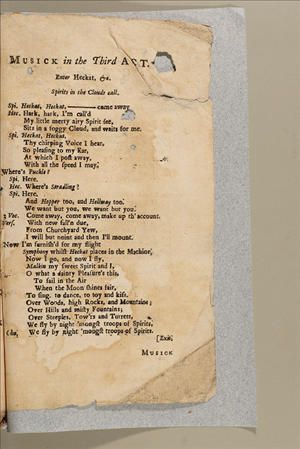 MUSICK in the Third ACT.
Enter Heckat, &c.
Spirits in the Clouds call.
Spi. Heckat, Heckat, ——— came away
Hec. Hark, hark, I'm call'd
My little merry airy Spirit see,
Sits in a foggy Cloud, and waits for me.
Spi. Heckat, Heckat,
Thy chirping Voice I hear,
So pleasing to my Ear,
At which I post away,
With all the speed I may,
Where's Puckle?
Spi. Here.
Hec. Where's Stradling?
Spi. Here.
And Hopper too, and Hellway too,
We want but you, we want but you.
3 Voc. Come away, come away, make up th' account.
Verf. With new fall'n due,
From Churchyard Yew,
I will but noint and then I'll mount.
Now I'm furnish'd for my flight
Symphony whilst Heckat places in the Machine,
Now I go, and now I fly,
Malkin my sweet Spirit and I,
O what a dainty Pleasure's this,
To sail in the Air
When the Moon shines fair,
To sing, to dance, to toy and kiss.
Over Woods, high Rocks, and Mountains;
Over Hills and misty Fountains;
Over Steeples, Tow'rs and Turrets,
We fly by night 'mongst troops of Spirits,
Cho. We fly by night 'mongst troops of Spirits.
[Exit.
MUSICK